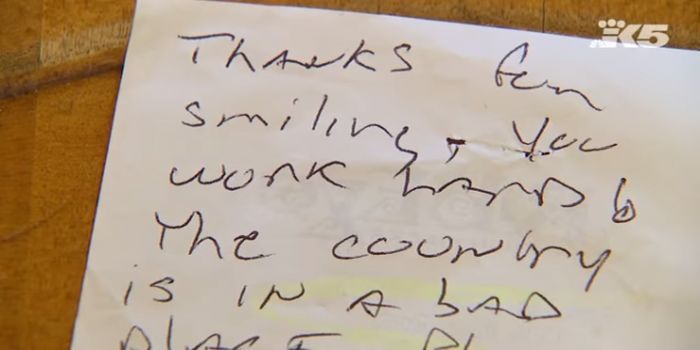 K5
THANKS for
smiling, you
work HARD &
The country
is IN A bAD
PLACE